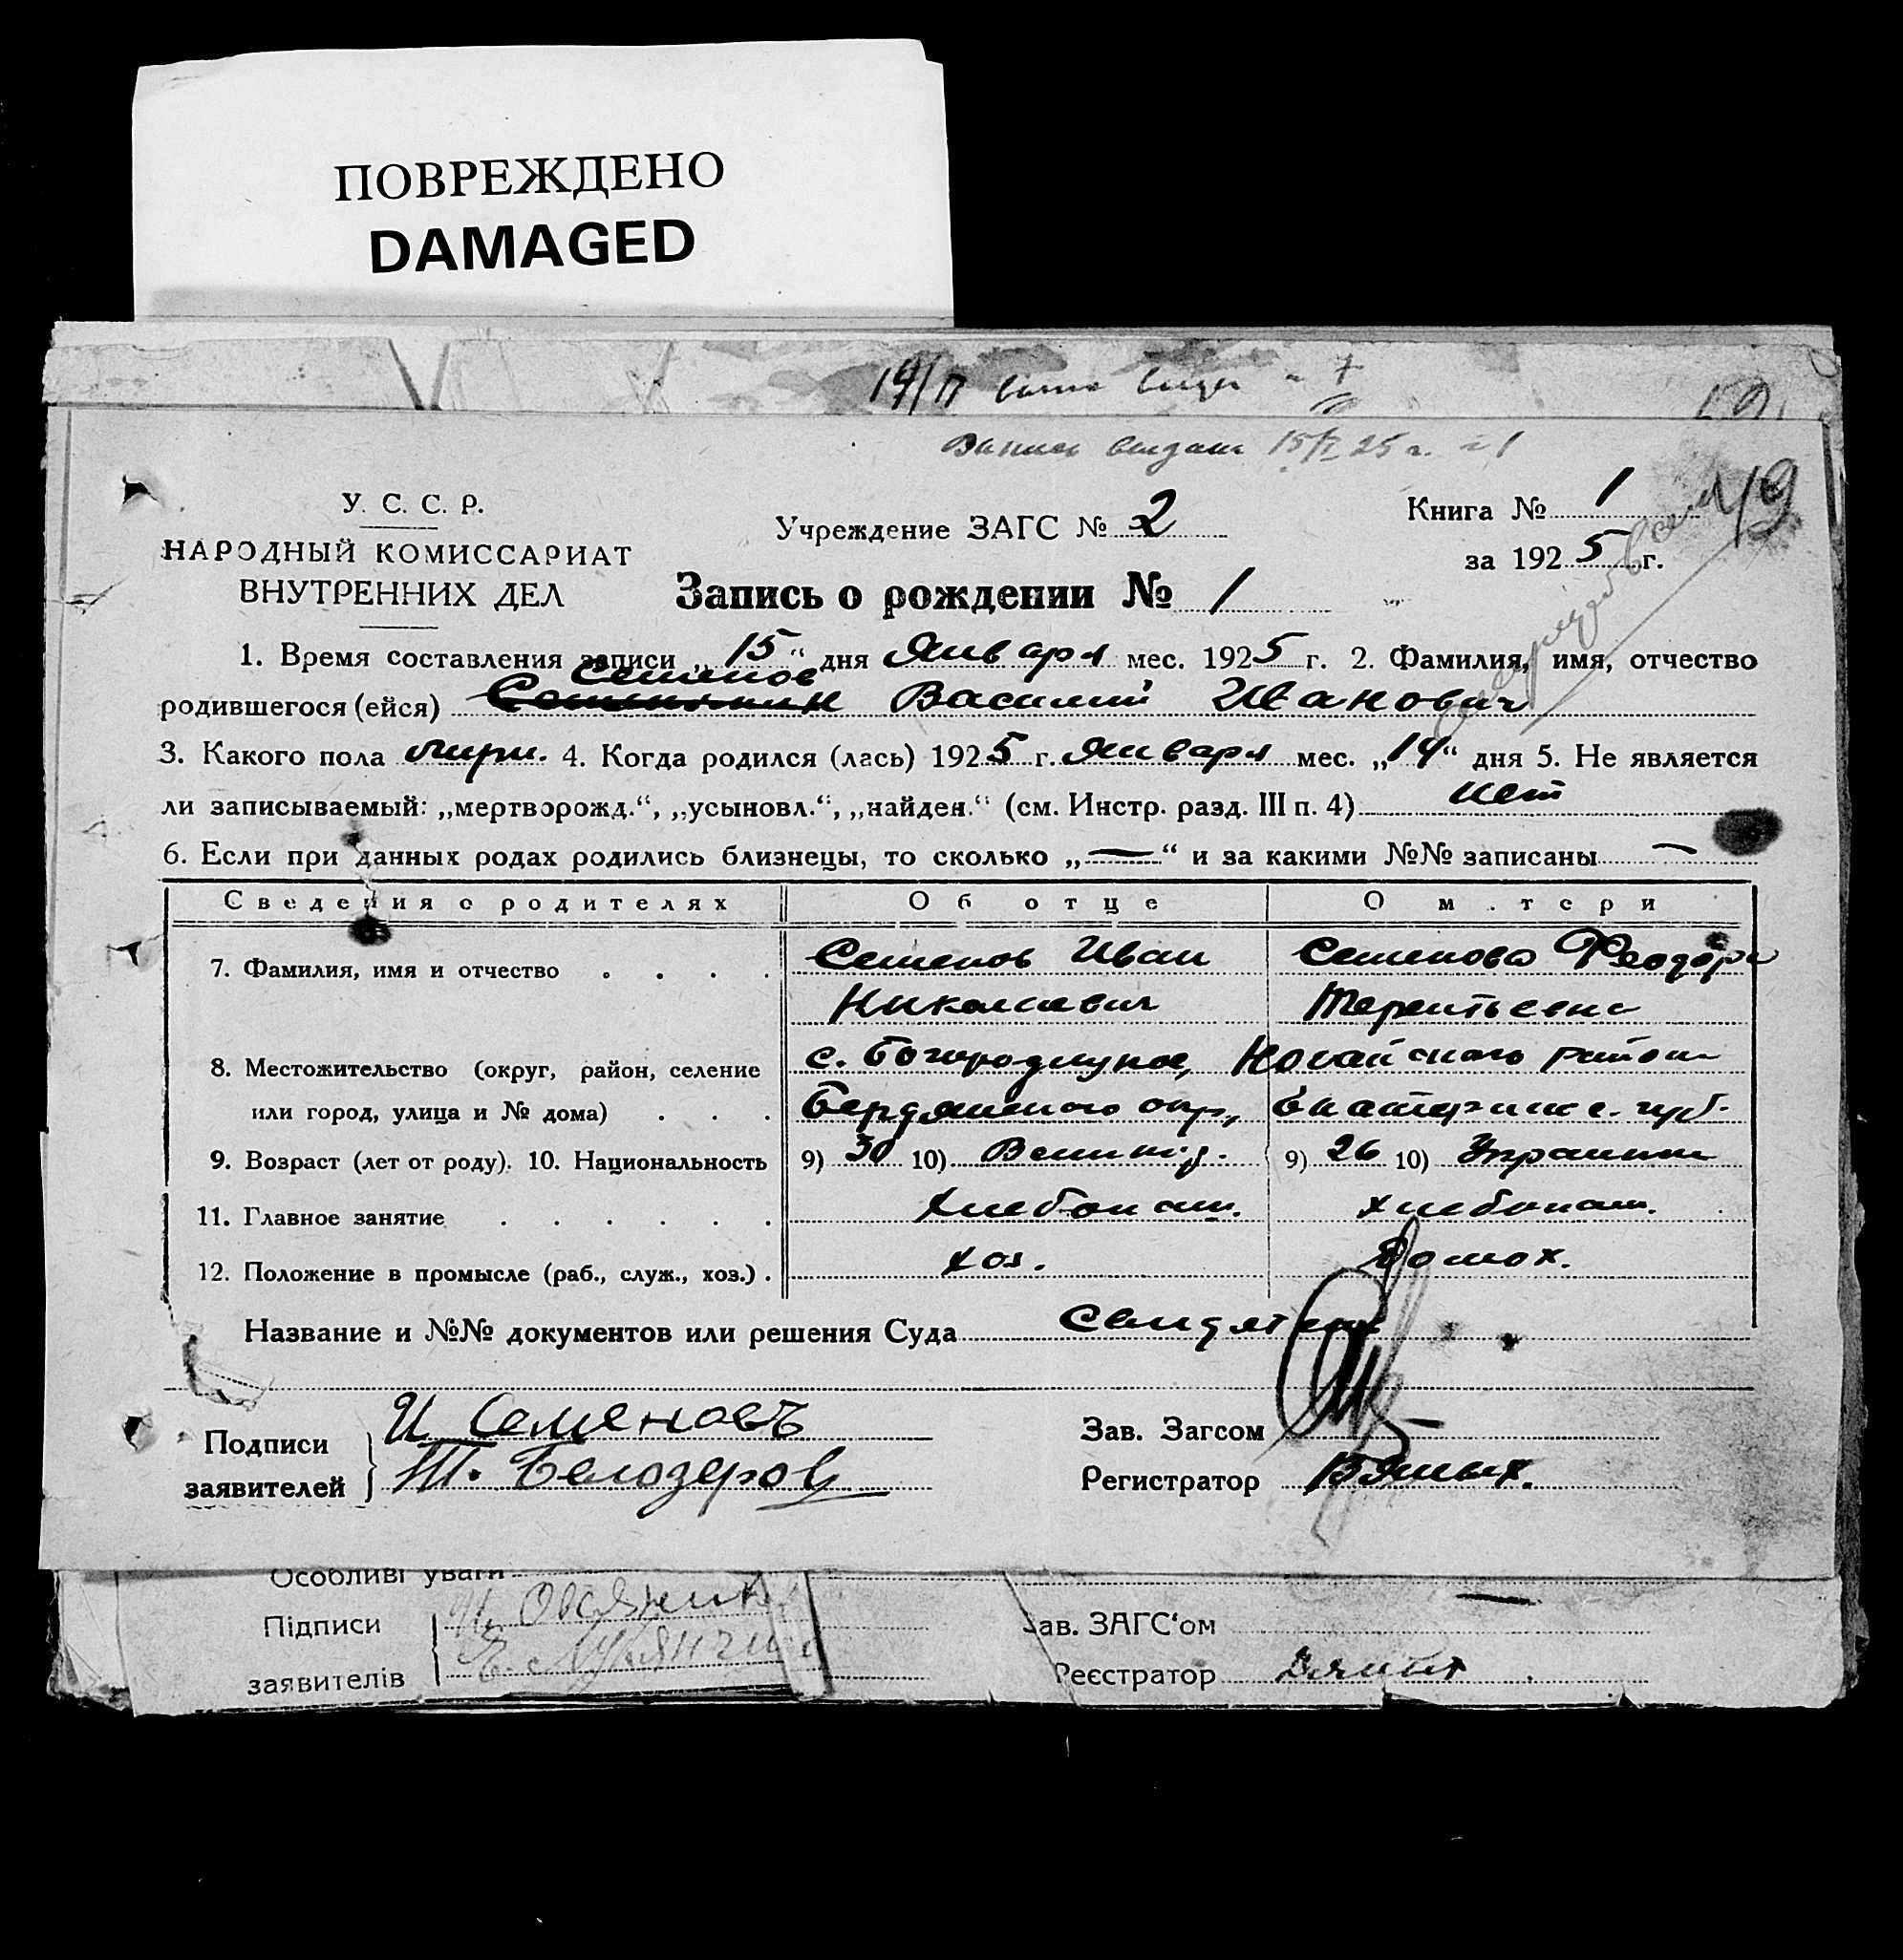 ПОВРЕЖДЕНО
DAMAGED
У. С. С. Р.
НАРОДНЫЙ КОМИССАРИАТ
ВНУТРЕННИХ ДЕЛ
Учреждение ЗАГС № 2
Книга № 1
за 1925 г.
49
Запись о рождении № 1
1. Время составления записи „15“ дня Января мес. 1925 г. 2. Фамилия, имя, отчество
Семенов
родившегося (ейся) Василий Иванович
3. Какого пола 4. Когда родился (лась) 1925 г. Января мес. „14“ дня 5. Не является
ли записываемый: „мертворожд.“, „усыновл.“, „найден.“ (см. Инстр. разд. III п. 4) нет
6. Если при данных родах родились близнецы, то сколько „—“ и за какими №№ записаны —
Сведения о родителях Об отце О м.тери
7. Фамилия, имя и отчество . . . . Семенов Иван Семенова Феодора
Николаевич Терентьевна
8. Местожительство (округ, район, селение с. Богородицкое, Ногайского района
или город, улица и № дома) . . . Бердянского окр., Екатеринс. губ.
9. Возраст (лет от роду). 10. Национальность 9) 30 10) 9) 26 10) Украинк
11. Главное занятие . . . . . . хлебопаш. хлебопаш.
12. Положение в промысле (раб., служ., хоз.) . хоз. Домох.
Название и №№ документов или решения Суда
Подписи заявителей
И Семеновъ
Т. Белозеров
Зав. Загсом
Регистратор
Особливі уваги
Підписи
заявителів
Зав. ЗАГС‘ом
Реєстратор